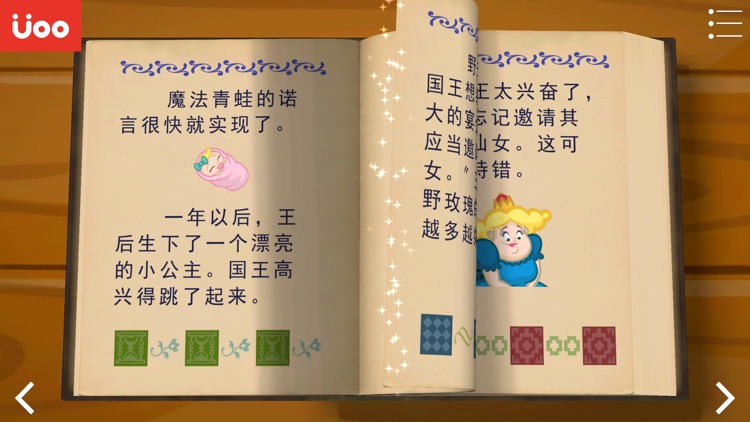 üoo
魔法青蛙的诺
言很快就实现了。
一年以后，王
后生下了一个漂亮
的小公主。国王高
兴得跳了起来。
野
国王想
大的宴
应当邀
女。”
野玫瑰
越多越
王太兴奋了，
忘记邀请其
山女。这可
待错。